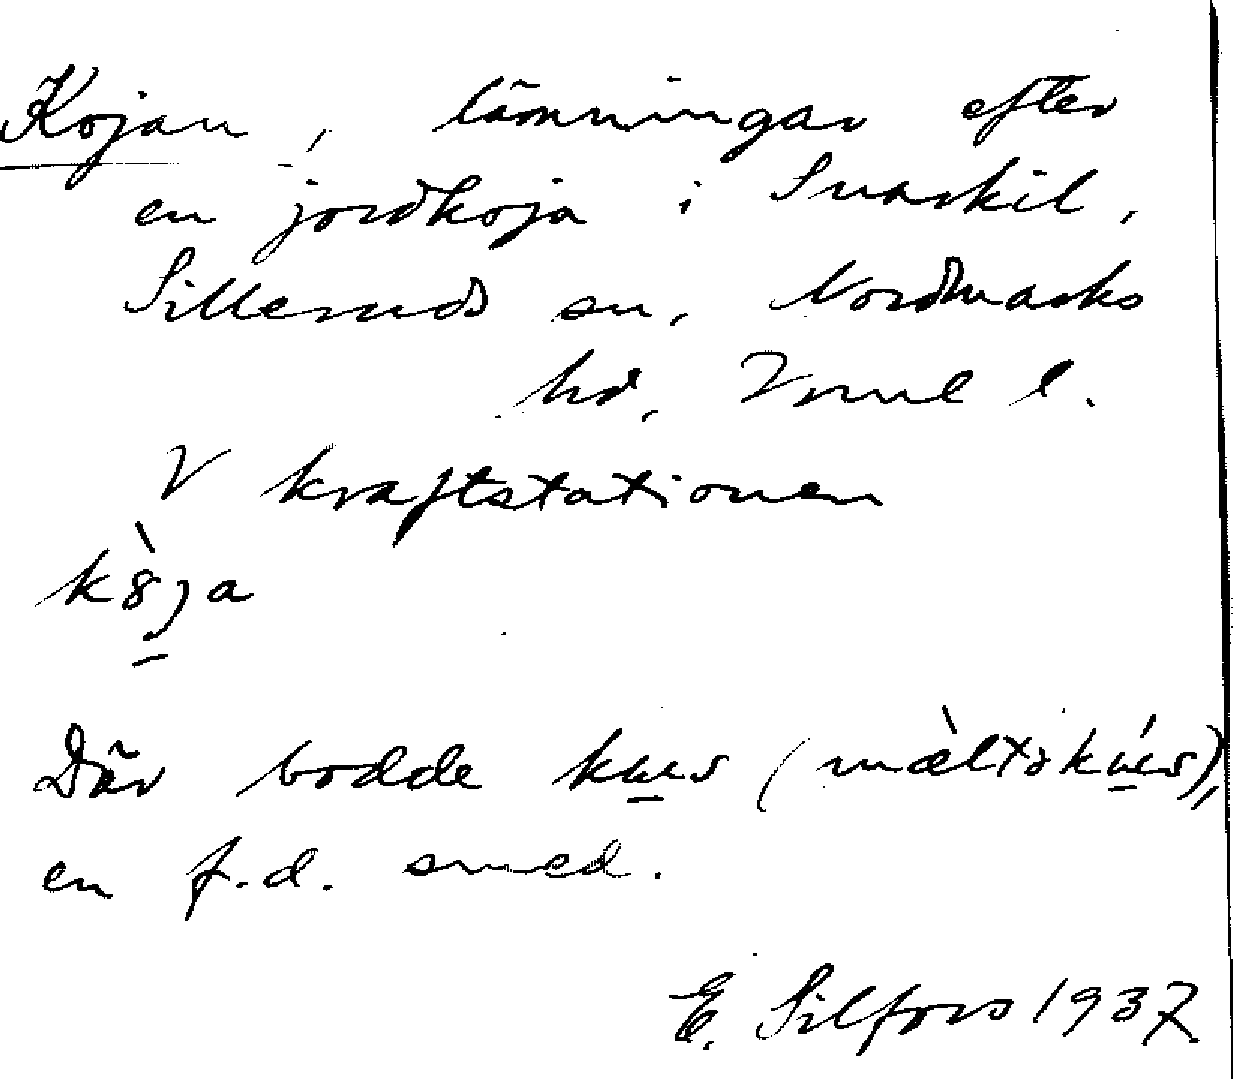 Kojan, lämningar efter
en jordkoja i Svarkil,
Sillerud sn, Nordmarks
hd, Vrml l.
V kraftstationen
kòja
Där bodde
en f.d. smed.
E. Silfors 1937